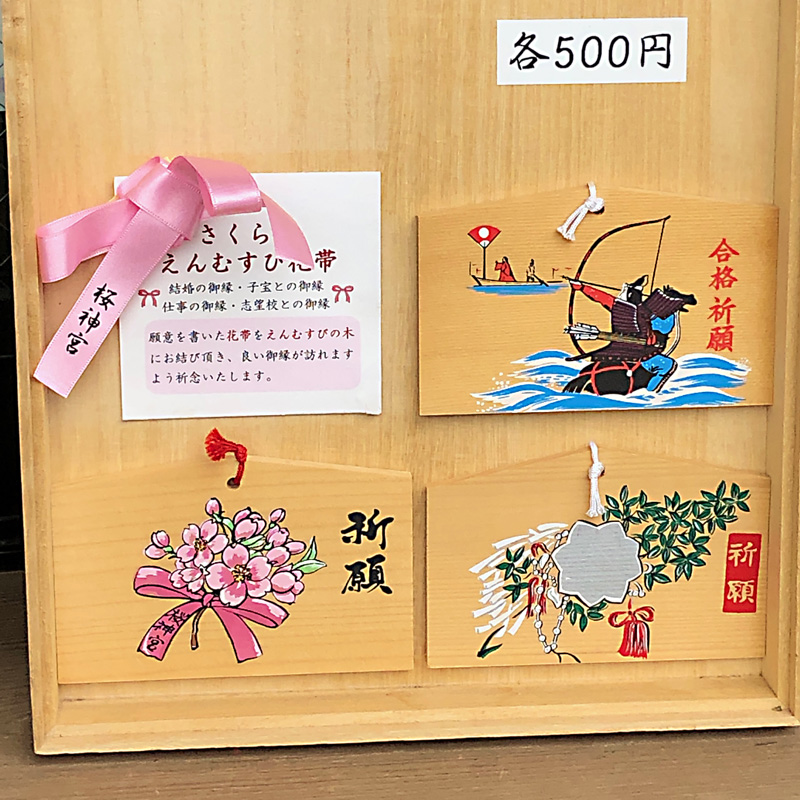 各500円
さくら
えんむすび花帯
結婚の御縁・子宝との御縁
仕事の御縁・志望校との御縁
願意を書いた花帯をえんむすびの木
にお結び頂き、良い御縁が訪れます
よう祈念いたします。
桜神宮
合格祈願
祈願
桜神宮
祈願